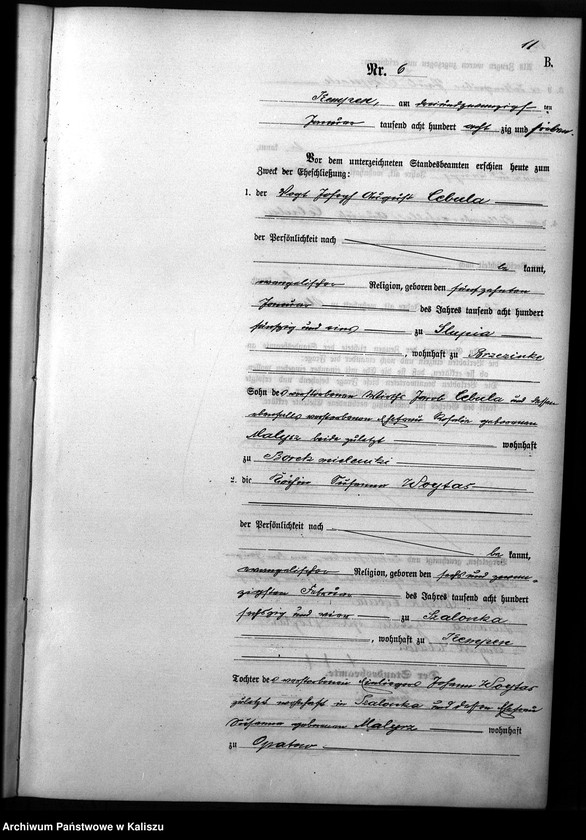 11
B.
Nr. 6
Kempen, am dreiundzwanzigsten ten
Januar tausend acht hundert acht zig und sieben.
Vor dem unterzeichneten Standesbeamten erschien heute zum
Zweck der Eheschließung:
1. der Vogt Joseph August Cebula
der Persönlichkeit nach
be kannt,
evangelischer Religion, geboren den fünfzehnten
Januar des Jahres tausend acht hundert
fünfzig und eins zu Slupia
, wohnhaft zu Brzezinke
Sohn des verstorbenen Wirths Jacob Cebula und dessen
ebenfalls verstorbenen Ehefrau Rosalie geborenen
Malyrz beide zuletzt wohnhaft
zu Borek mielencki
2. die Köchin Susanna Woytas
der Persönlichkeit nach
be kannt,
evangelischer Religion, geboren den sechs und zwan-
zigsten Februar des Jahres tausend acht hundert
sechszig und vier zu Szalonka
, wohnhaft zu Kempen
Tochter des verstorbenen Einliegers Johann Woytas
zuletzt wohnhaft in Szalonka und dessen Ehefrau
Susanna geborenen Malyrz wohnhaft
zu Opatow
Archiwum Państwowe w Kaliszu